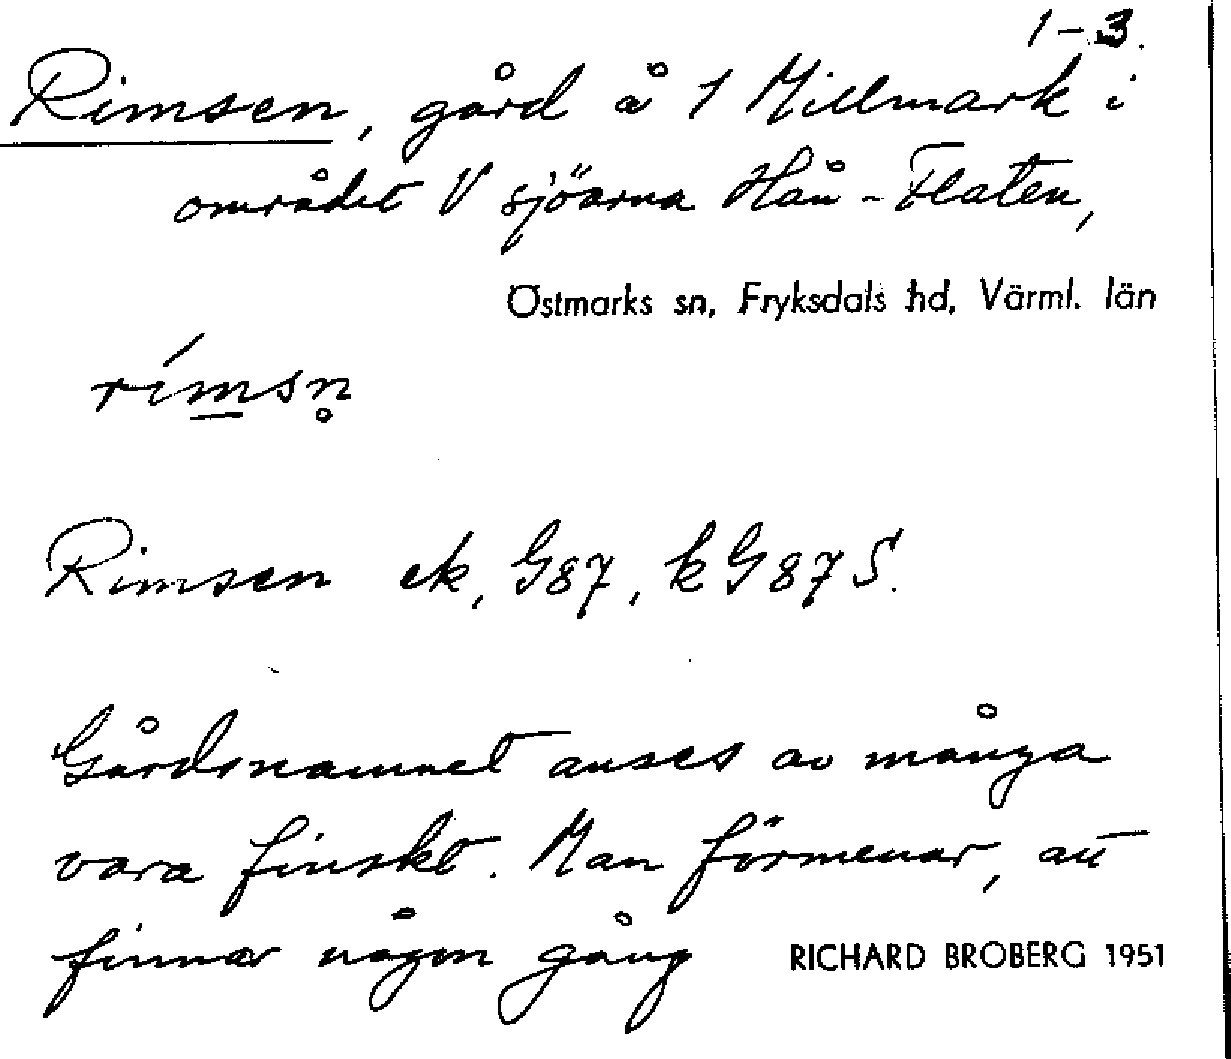 1-3.
Rimsen, gård å 1 Millmark i
området V sjöarna Hån - Flaten,
Östmarks sn, Fryksdals hd, Värml. län
rímsn̥
Rimsen ek, G87, k G 87 S.
Gårdsnamnet anses av många
vara finskt. Man förmenar, att
finnar någon gång
RICHARD BROBERG 1951